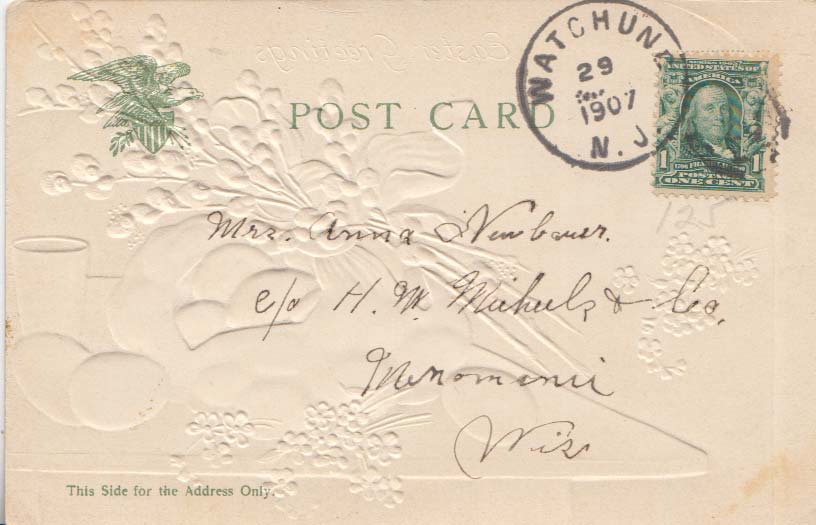 Easter Greetings
POST CARD
WATCHUNG
29
1907
N. J.
SERIES 1902
UNITED STATES OF
AMERICA
1 FRANKLIN 1
POSTAGE
ONE CENT
125
Mrs. Anna Newbauer.
c/o H. M. Micheels & Co,
Menomonie
Wis
This Side for the Address Only.